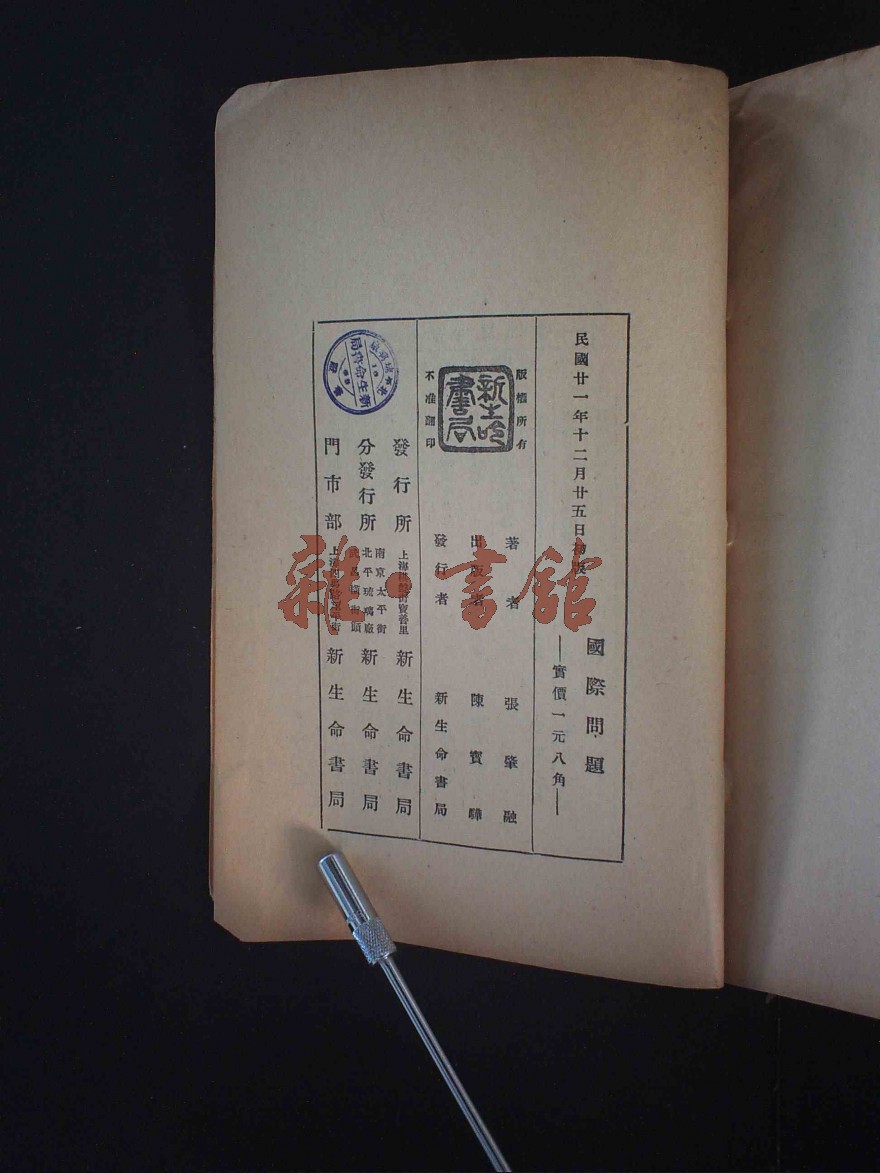 民國廿一年十二月廿五日初版
國際問題
—實價一元八角—
版權所有
新生命書局
不准翻印
著者 張肇融
出版者 陳寶驊
發行者 新生命書局
發行所 上海棋盤街寶善里 新生命書局
分發行所 南京太平街 北平琉璃廠 武昌橫街頭 新生命書局
門市部 新生命書局
新生命書局
雜·書館